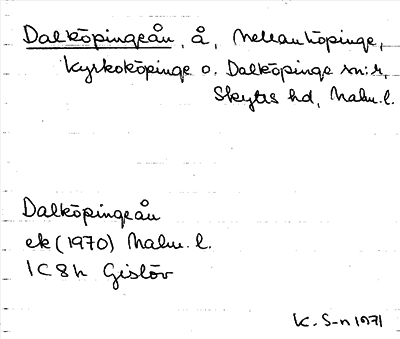 Dalköpingeån, å, mellan Köpinge,
Kyrkoköpinge o. Dalköpinge sn:r,
Skytts hd, Malm. l.
Dalköpingeån
ek (1970) Malm. l.
1C8h Gislöv
K. S-n 1971